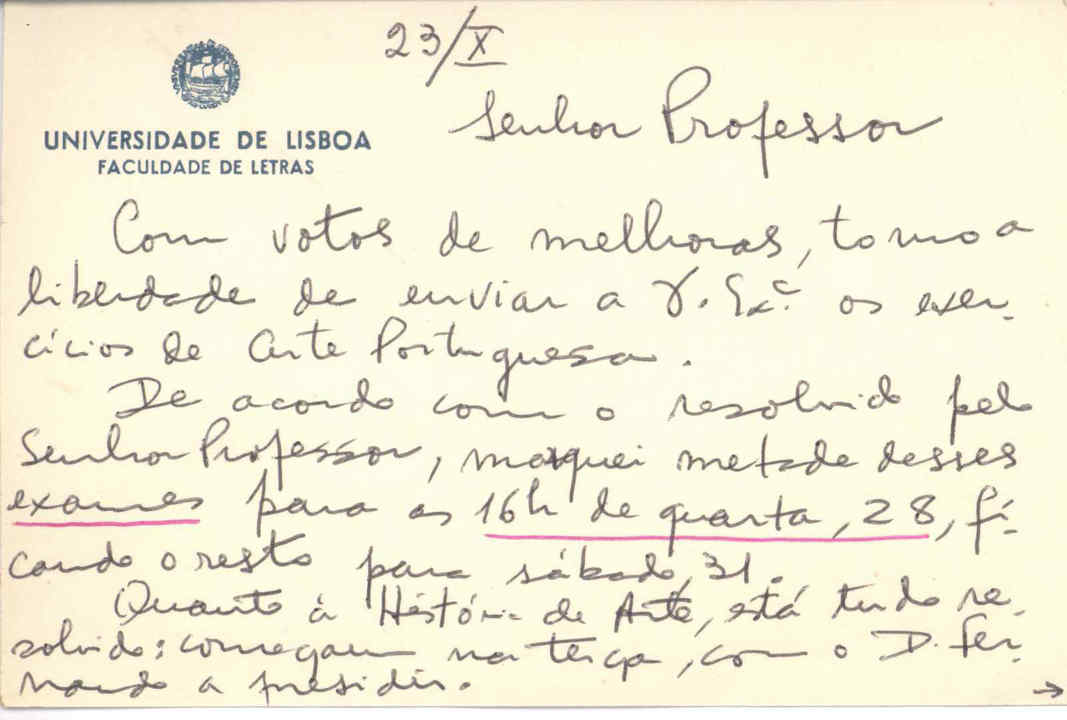 23/X
UNIVERSIDADE DE LISBOA
FACULDADE DE LETRAS
Senhor Professor
Com votos de melhoras, tomo a
liberdade de enviar a V. Exª. os exer-
cícios de Arte Portuguesa.
De acordo com o resolvido pelo
Senhor Professor, marquei metade desses
exames para as 16h de quarta, 28, fi-
cando o resto para sábado, 31.
Quanto à História de Arte, está tudo re-
solvido: começam na terça, com o D. Fer-
nando a presidir.
→